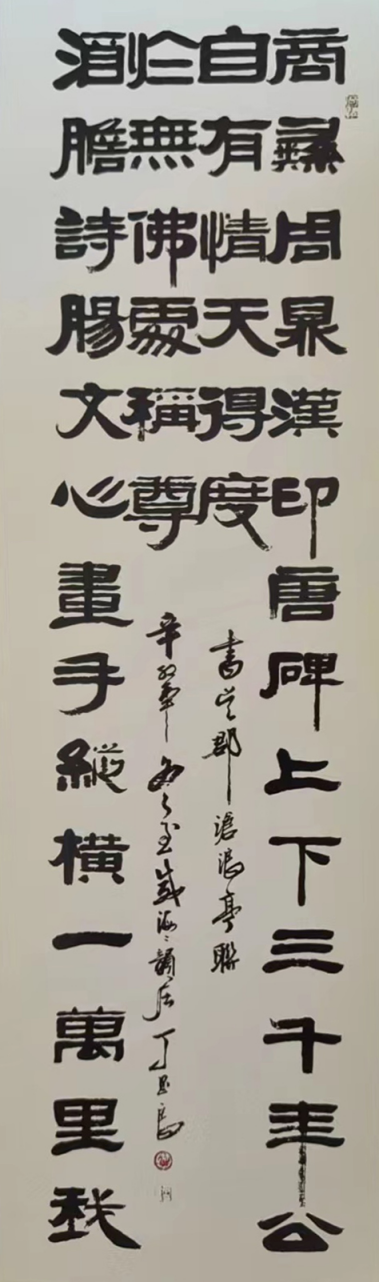 商彝周鼎漢印唐碑上下三千年公
自有情天得度
酒膽詩腸文心畫手縱橫一萬里我
於無佛處稱尊
書吳郡滄浪亭聯
辛卯 威海 丁